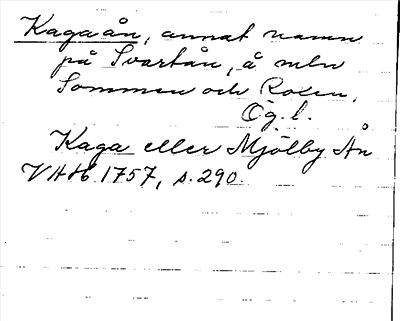 Kagaån, annat namn
på Svartån, å mln
Sommen och Roxen,
Ög. l.
Kaga eller Mjölby Ån
VAH. 1757, s. 290.